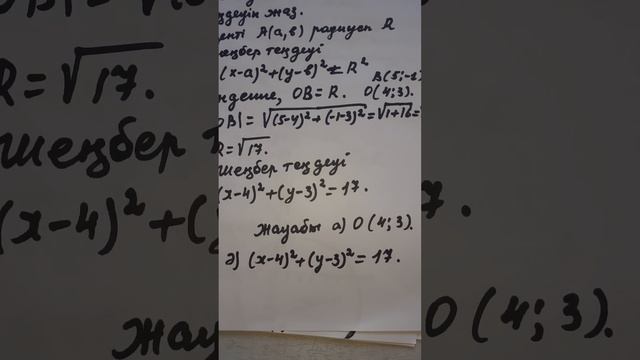 теңдеуін жаз.
центі A(a,b) радиусы R
шеңбер теңдеуі
(x-a)²+(y-b)²=R²
B(5;-1)
ндеше, OB=R. O(4;3).
OB|=√(5-4)²+(-1-3)²=√1+16=
R=√17.
шеңбер теңдеуі
(x-4)²+(y-3)²=17.
Жауабы: а) O(4;3).
ә) (x-4)²+(y-3)²=17.